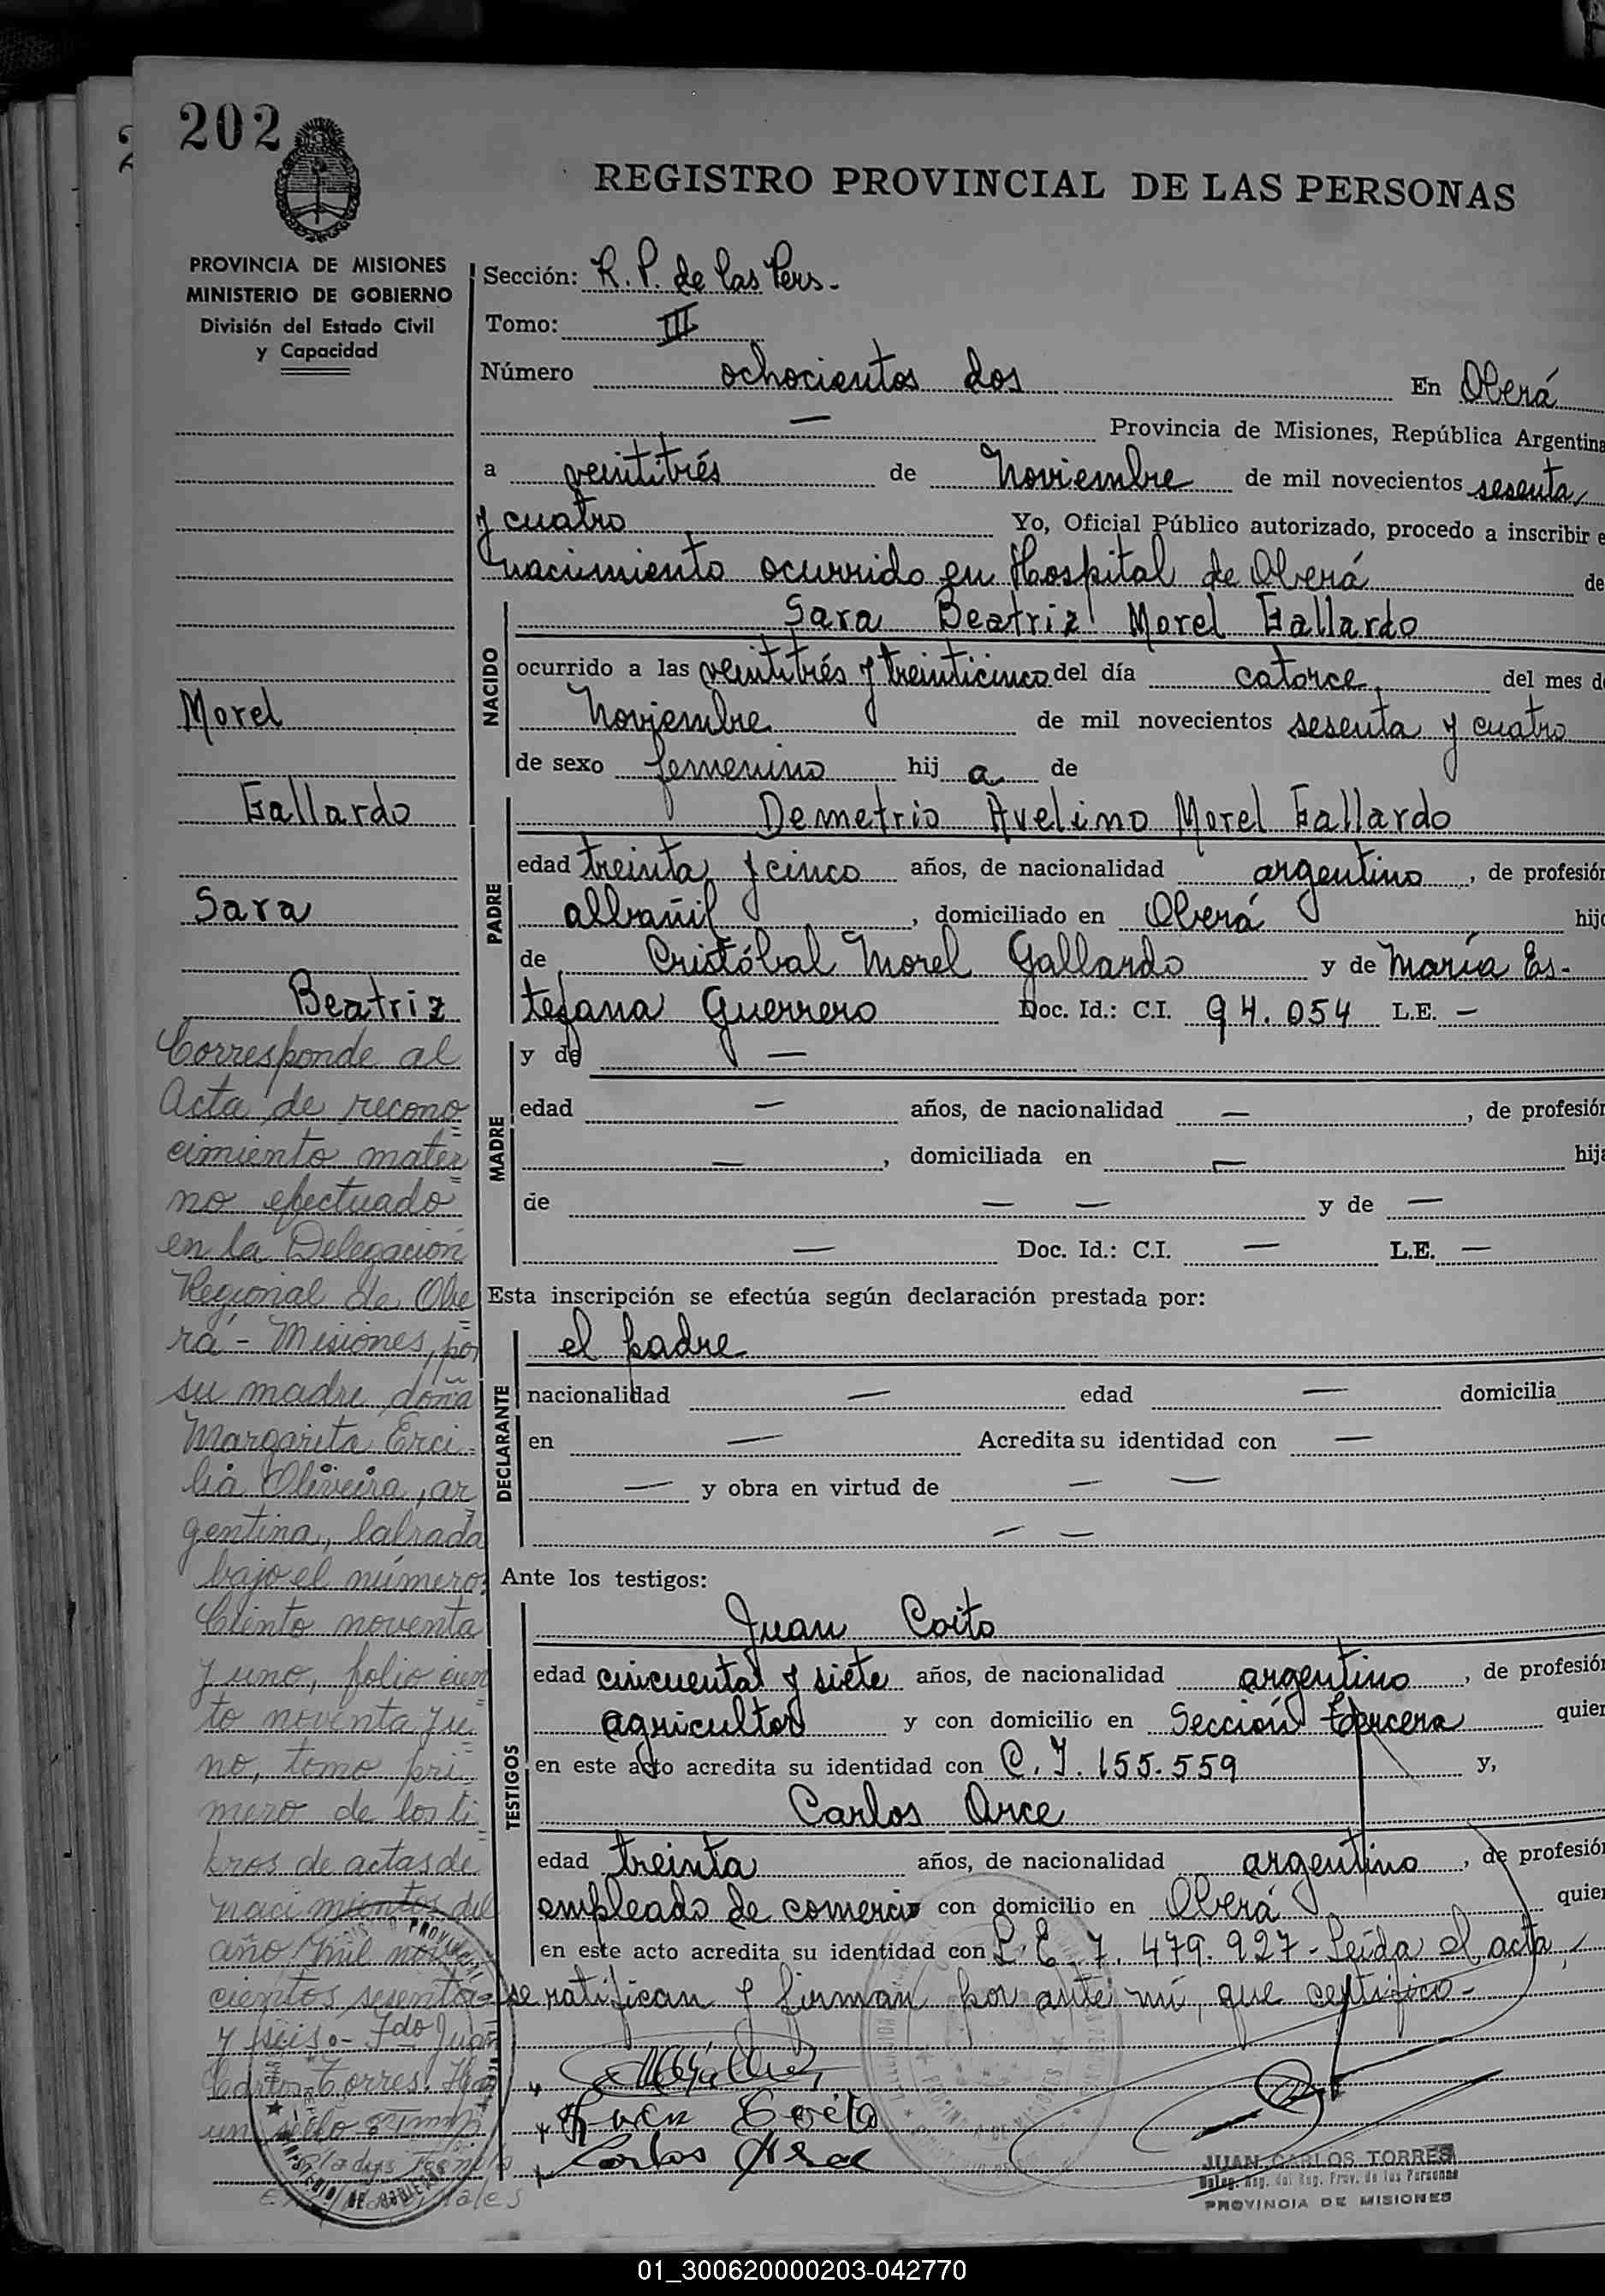 202
REGISTRO PROVINCIAL DE LAS PERSONAS
PROVINCIA DE MISIONES
MINISTERIO DE GOBIERNO
División del Estado Civil
y Capacidad
Sección: R. P. de las Pers.
Tomo: III
Número ochocientos dos En Oberá
— Provincia de Misiones, República Argentina
a veintitrés de Noviembre de mil novecientos sesenta
y cuatro Yo, Oficial Público autorizado, procedo a inscribir e
nacimiento ocurrido en Hospital de Oberá de
NACIDO
Sara Beatriz Morel Gallardo
ocurrido a las veintitrés y treinticinco del día catorce del mes d
Noviembre de mil novecientos sesenta y cuatro
de sexo femenino hij a de
PADRE
Demetrio Avelino Morel Gallardo
edad treinta y cinco años, de nacionalidad argentino, de profesión
albañil, domiciliado en Oberá hijo
de Cristóbal Morel Gallardo y de María Es-
tefana Guerrero Doc. Id.: C.I. 94.054 L.E. —
MADRE
y de —
edad — años, de nacionalidad —, de profesión
—, domiciliada en — hija
de — — y de —
— Doc. Id.: C.I. — L.E. —
Esta inscripción se efectúa según declaración prestada por:
DECLARANTE
el padre
nacionalidad — edad — domicilia
en — Acredita su identidad con —
— y obra en virtud de — —
— —
Ante los testigos:
TESTIGOS
Juan Coito
edad cincuenta y siete años, de nacionalidad argentino, de profesión
agricultor y con domicilio en Sección Tercera quien
en este acto acredita su identidad con C. I. 155.559 y,
Carlos Arce
edad treinta años, de nacionalidad argentino, de profesión
empleado de comercio con domicilio en Oberá quien
en este acto acredita su identidad con L. E. 7.479.927- Leída el acta,
se ratifican y firman por ante mí, que certifico-
Juan Coito
Carlos Arce
JUAN CARLOS TORRES
Deleg. Reg. del Reg. Prov. de las Personas
PROVINCIA DE MISIONES
Morel
Gallardo
Sara
Beatriz
Corresponde al
Acta de recono
cimiento mater
no efectuado
en la Delegación
Regional de Obe
rá - Misiones, por
su madre doña
Margarita Erci
lia Oliveira, ar
gentina, labrada
bajo el número
Ciento noventa
y uno, folio cien
to noventa y u
no, tomo pri
mero de los li
bros de actas de
nacimientos del
año mil nove
cientos sesenta
y seis.- Fdo Juan
Carlos Torres. Hay
un sello
01_300620000203-042770